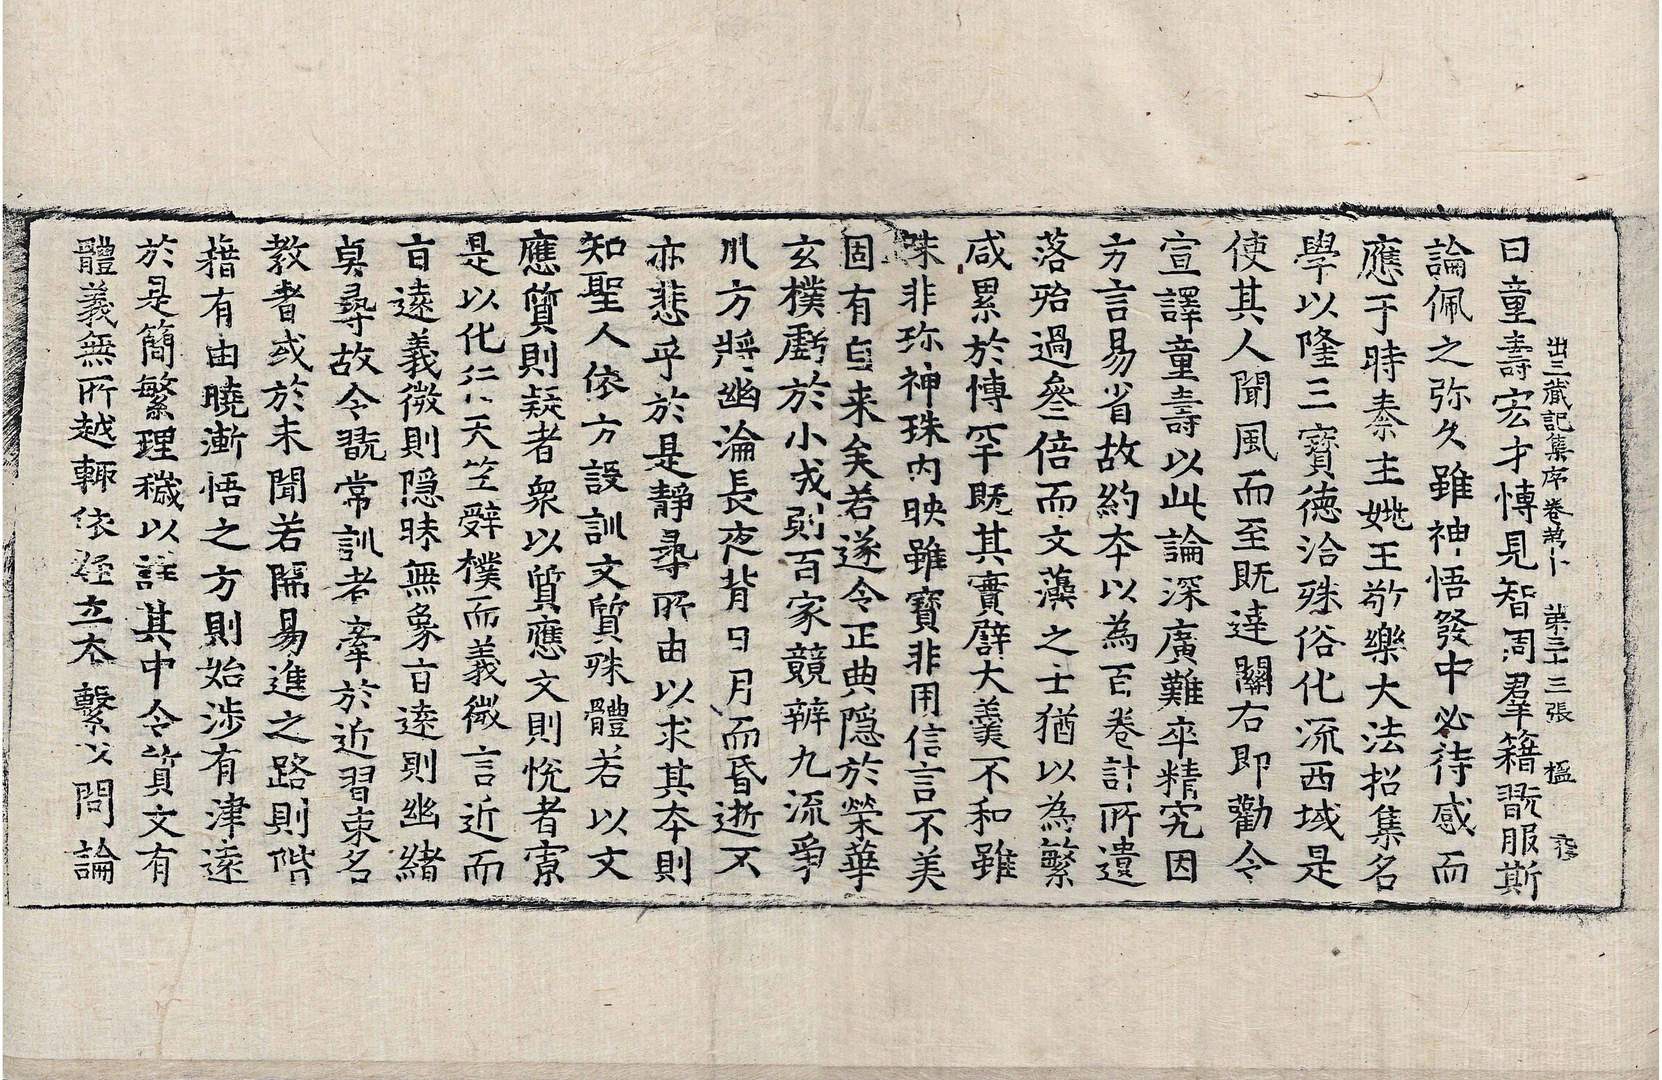 出三藏記集序卷第十 第三十三張 楹
曰童壽宏才愽見智周羣籍翫服斯
論佩之弥久雖神悟發中必待感而
應于時秦主姚王敬樂大法招集名
學以隆三寶德洽殊俗化流西域是
使其人聞風而至既達關右即勸令
宣譯童壽以此論深廣難卒精究因
方言易省故約夲以為百卷計所遺
落殆過叅倍而文藻之士猶以為繁
咸累於愽罕既其實譬大羹不和雖
味非珎神珠內映雖寶非用信言不美
固有自来矣若遂令正典隱於榮華
玄樸虧於小成則百家競辨九流爭
川方將幽淪長夜背日月而昏逝不
亦悲乎於是靜尋所由以求其夲則
知聖人依方設訓文質殊體若以文
應質則疑者衆以質應文則悅者寡
是以化行天竺辭樸而義微言近而
旨遠義微則隐昧無象旨遠則幽緒
莫尋故令翫常訓者牽於近習束名
教者或於未聞若開易進之路則階
藉有由曉漸悟之方則始涉有津遠
於是簡繁理穢以詳其中令質文有
體義無所越輙依經立夲繫以問論